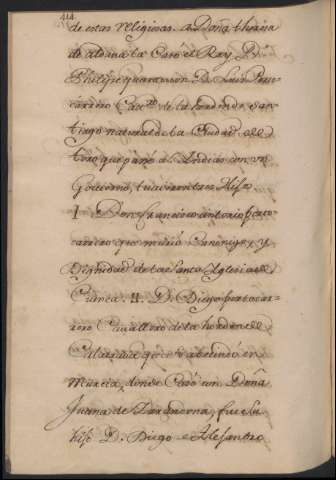 114.
de estas religiosas. A Doña theresa
de aldana la Casó el Rey D.
Phelipe quarto con D. Luis Porto
carrero Cavº de la horden de San
tiago natural de la Ciudad de
toro que pasó a Indias con un
Govierno, tuvieron tres Hijos
I Don Francisco antonio Porto
carrero que murió Canonigo, y
Dignidad de la Santa Yglesia de
Cuenca. II. D. Diego portocar
rero Cavallero de la horden de
Calatrava que se abecindó en
Murcia, donde Casó con Doña
Juana de fue su
hijo D. Diego Alejandro